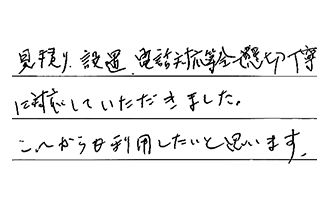 見積り、設置、電話対応等全て親切丁寧
に対応していただきました。
これからも利用したいと思います。